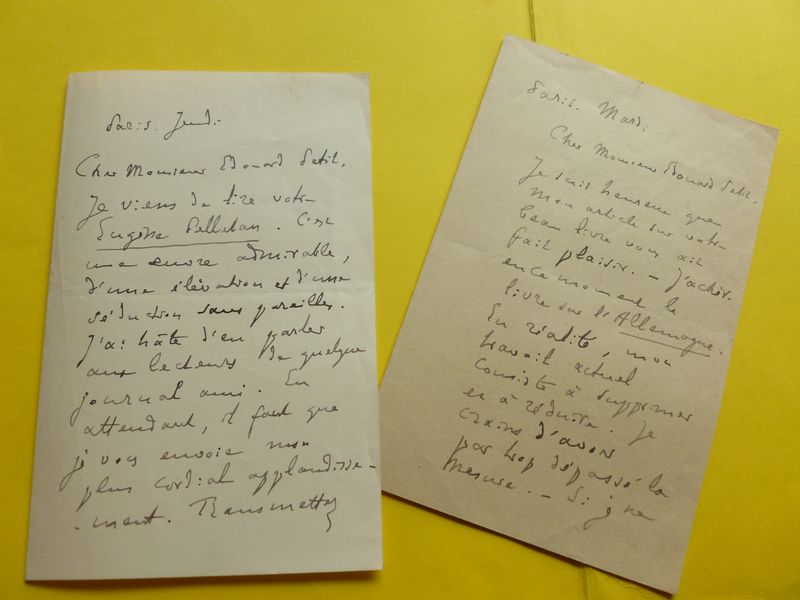 Paris. Jeudi
Cher Monsieur Edouard Petit,
Je viens de lire votre
Eugène Pelletan. C'est
une œuvre admirable,
d'une élévation et d'une
séduction sans pareilles.
J'ai hâte d'en parler
aux lecteurs de quelque
journal ami. En
attendant, il faut que
je vous envoie mon
plus cordial applaudisse-
-ment. Transmettez
Paris. Mardi
Cher Monsieur Edouard Petit,
Je suis heureux que
mon article sur votre
beau livre vous ait
fait plaisir. — J'achève
en ce moment le
livre sur l'Allemagne.
En réalité, mon
travail actuel
consiste à supprimer
et à réduire. Je
crains d'avoir
par trop dépassé la
mesure. — Si je ne